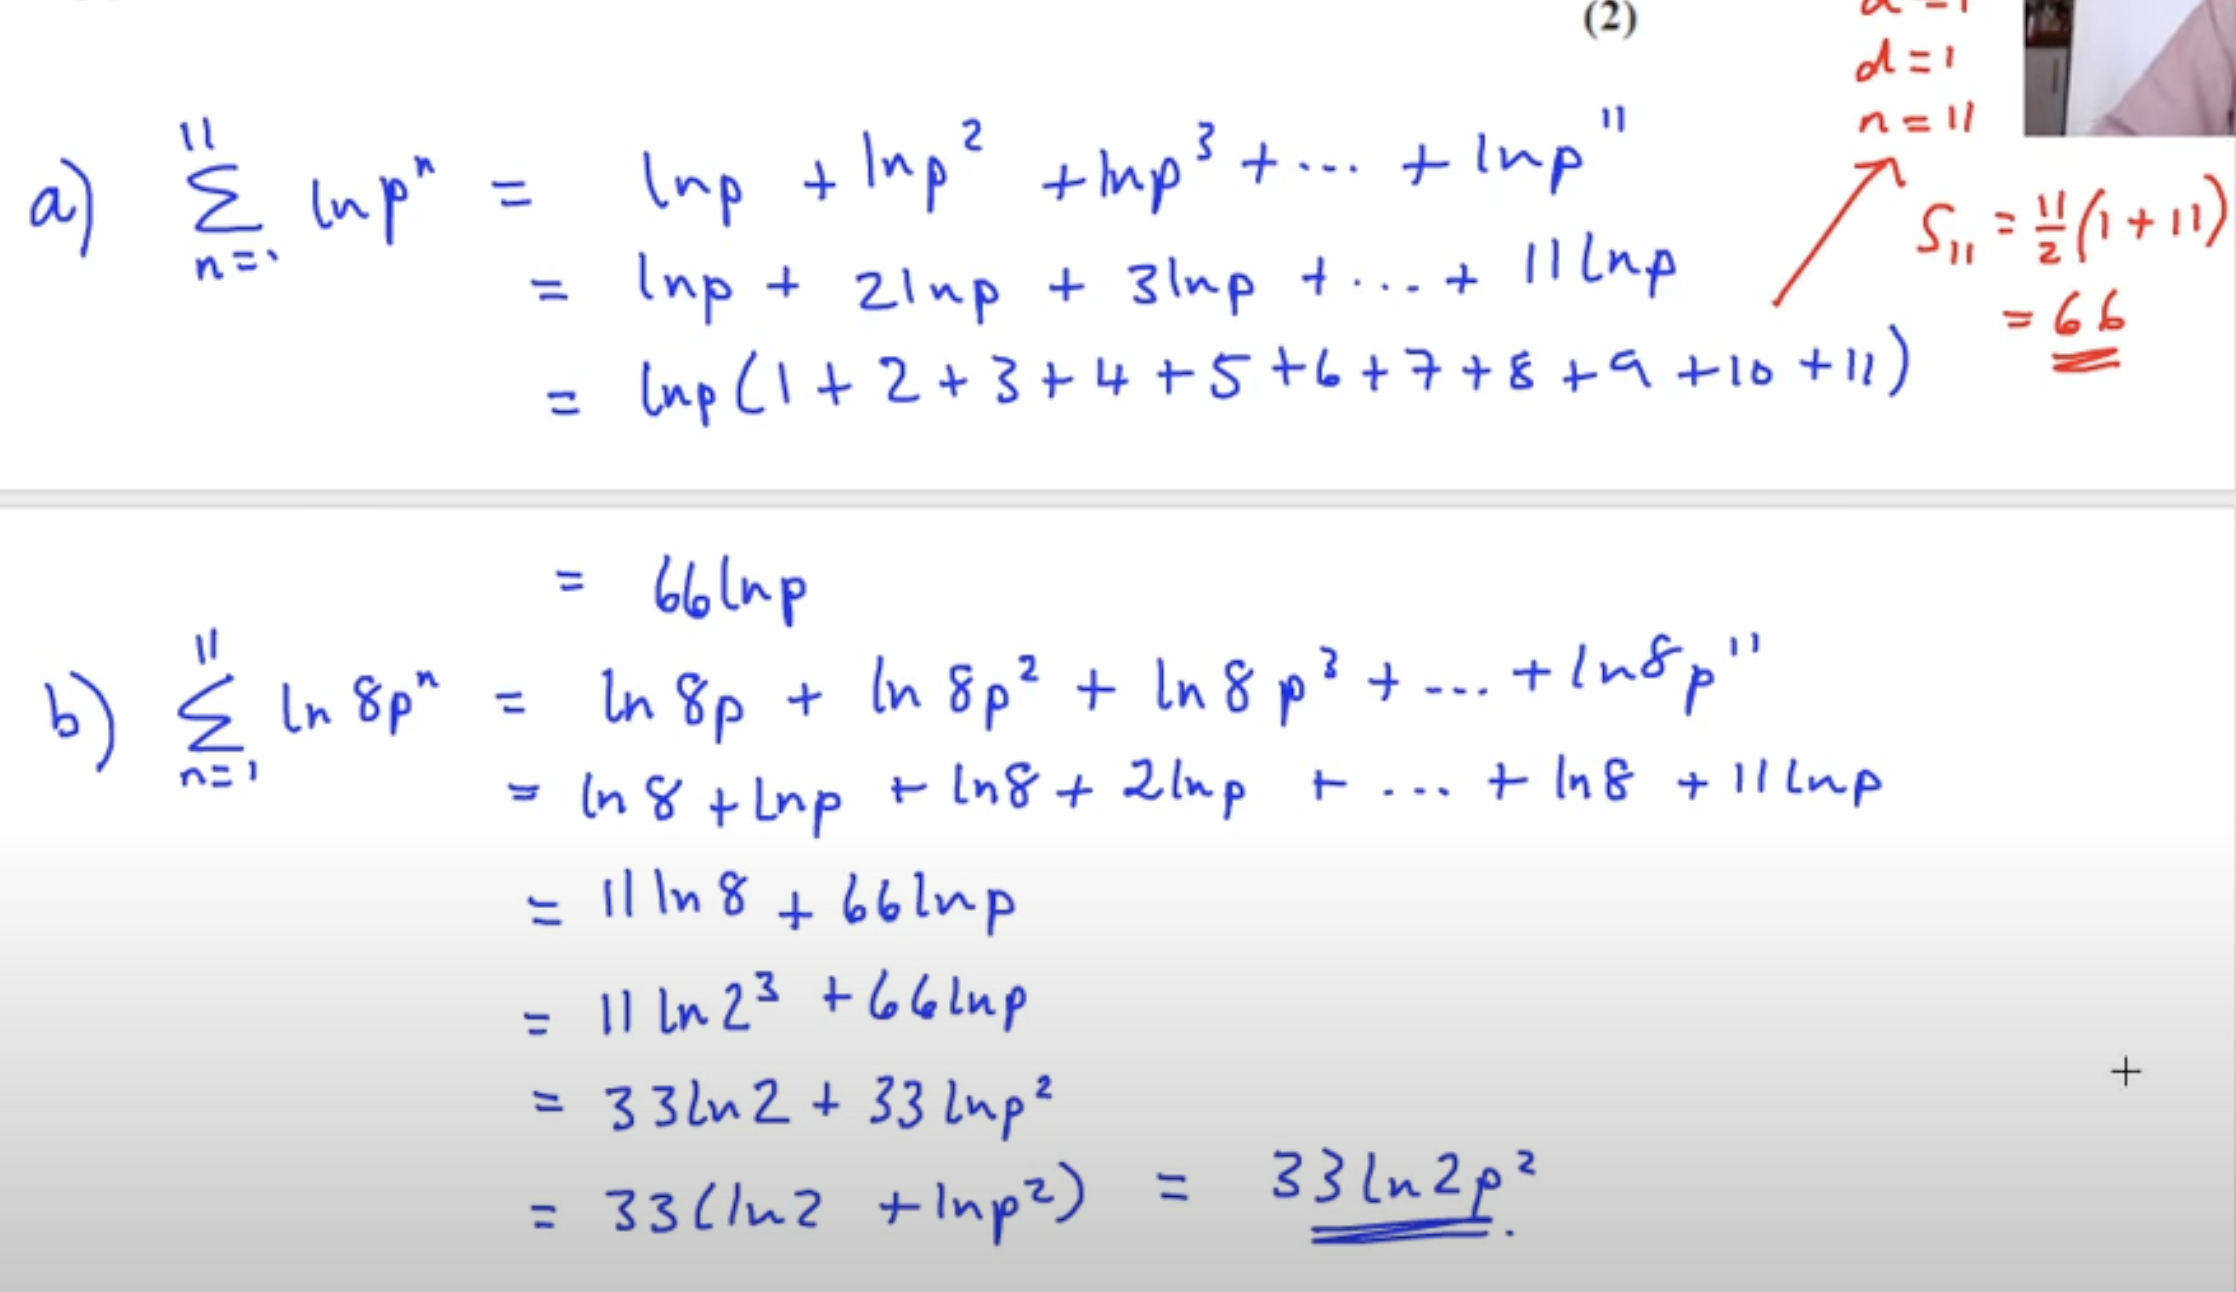 (2)
d = 1
n = 11
a) 11 Σ n=1 ln pⁿ = ln p + ln p² + ln p³ + ... + ln p¹¹
S₁₁ = 11/2 (1 + 11)
= ln p + 2 ln p + 3 ln p + ... + 11 ln p
= 66
= ln p (1 + 2 + 3 + 4 + 5 + 6 + 7 + 8 + 9 + 10 + 11)
= 66 ln p
b) 11 Σ n=1 ln 8pⁿ = ln 8p + ln 8p² + ln 8p³ + ... + ln 8p¹¹
= ln 8 + ln p + ln 8 + 2 ln p + ... + ln 8 + 11 ln p
= 11 ln 8 + 66 ln p
= 11 ln 2³ + 66 ln p
= 33 ln 2 + 33 ln p²
= 33 (ln 2 + ln p²) = 33 ln 2p².